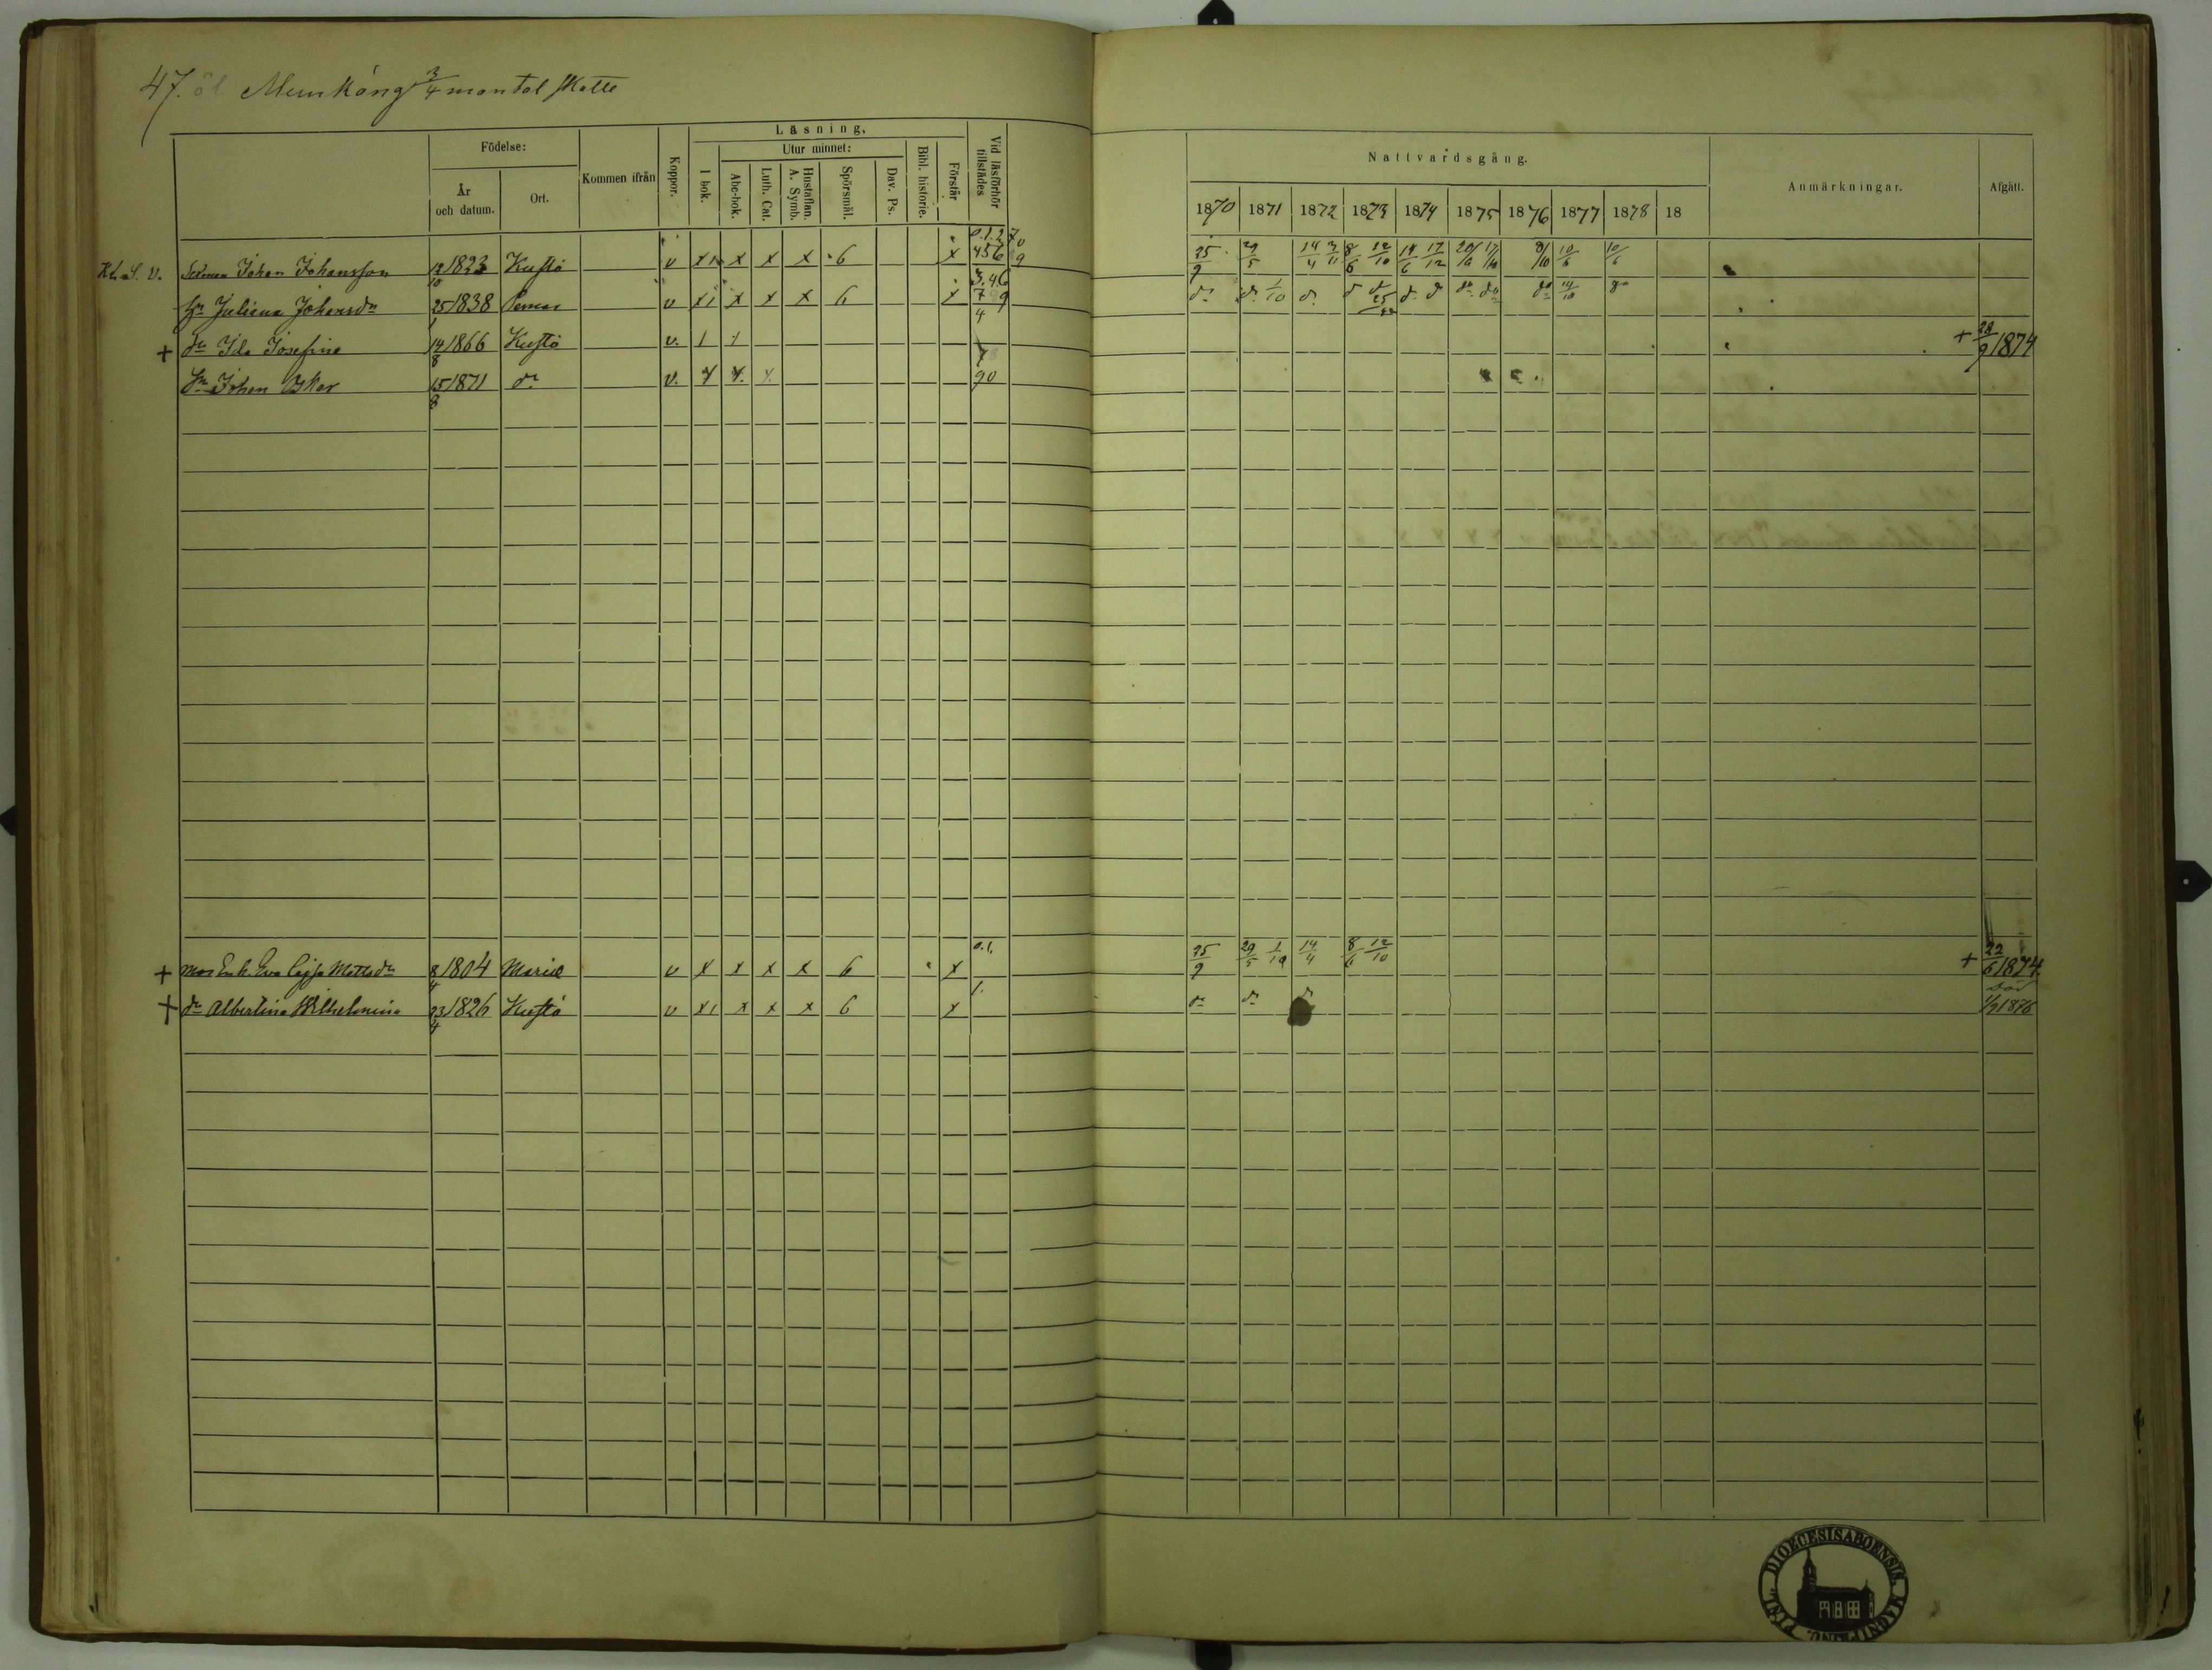 47. öl Munkäng 3/4 mantal skatte
Födelse:
År och datum.
Ort.
Kommen ifrån
Koppor.
Läsning.
I bok.
Utur minnet:
Abc-bok.
Luth. Cat.
Hustaflan. A. Symb.
Spörsmål.
Dav. Ps.
Bibl. historie.
Förstår
Vid läsförhör tillstädes
Nattvardsgång.
1870 1871 1872 1873 1874 1875 1876 1877 1878 18
Anmärkningar.
Afgått.
Johan Johansson 1823 Kustö v x1 x x x 6 x 0.1.2 456 25/9 29/5 14/4 3/11 8/6 12/10 14/6 17/12
hu Juliana Johansdr 25/1 1838 Pemar v x1 x x x 6 x 3.46 7 9 do
+ dr Ida Josefina 14/8 1866 Kustö v. 1 1 4 + 28/9 1874
Sn Johan Oskar 15/8 1871 do v. 90
+ mor Enk. Eva Cajsa Mattsdr 8/4 1804 Marie v x x x x 6 x 0.1. 25/9 29/5 1/10 14/4 8/6 12/10 + 22/6 1874
+ dr Albertina Wilhelmina 23/4 1826 Kustö v x1 x x x 6 x 1. do do död 1/9 1876
DIOECESIS ABOENSIS